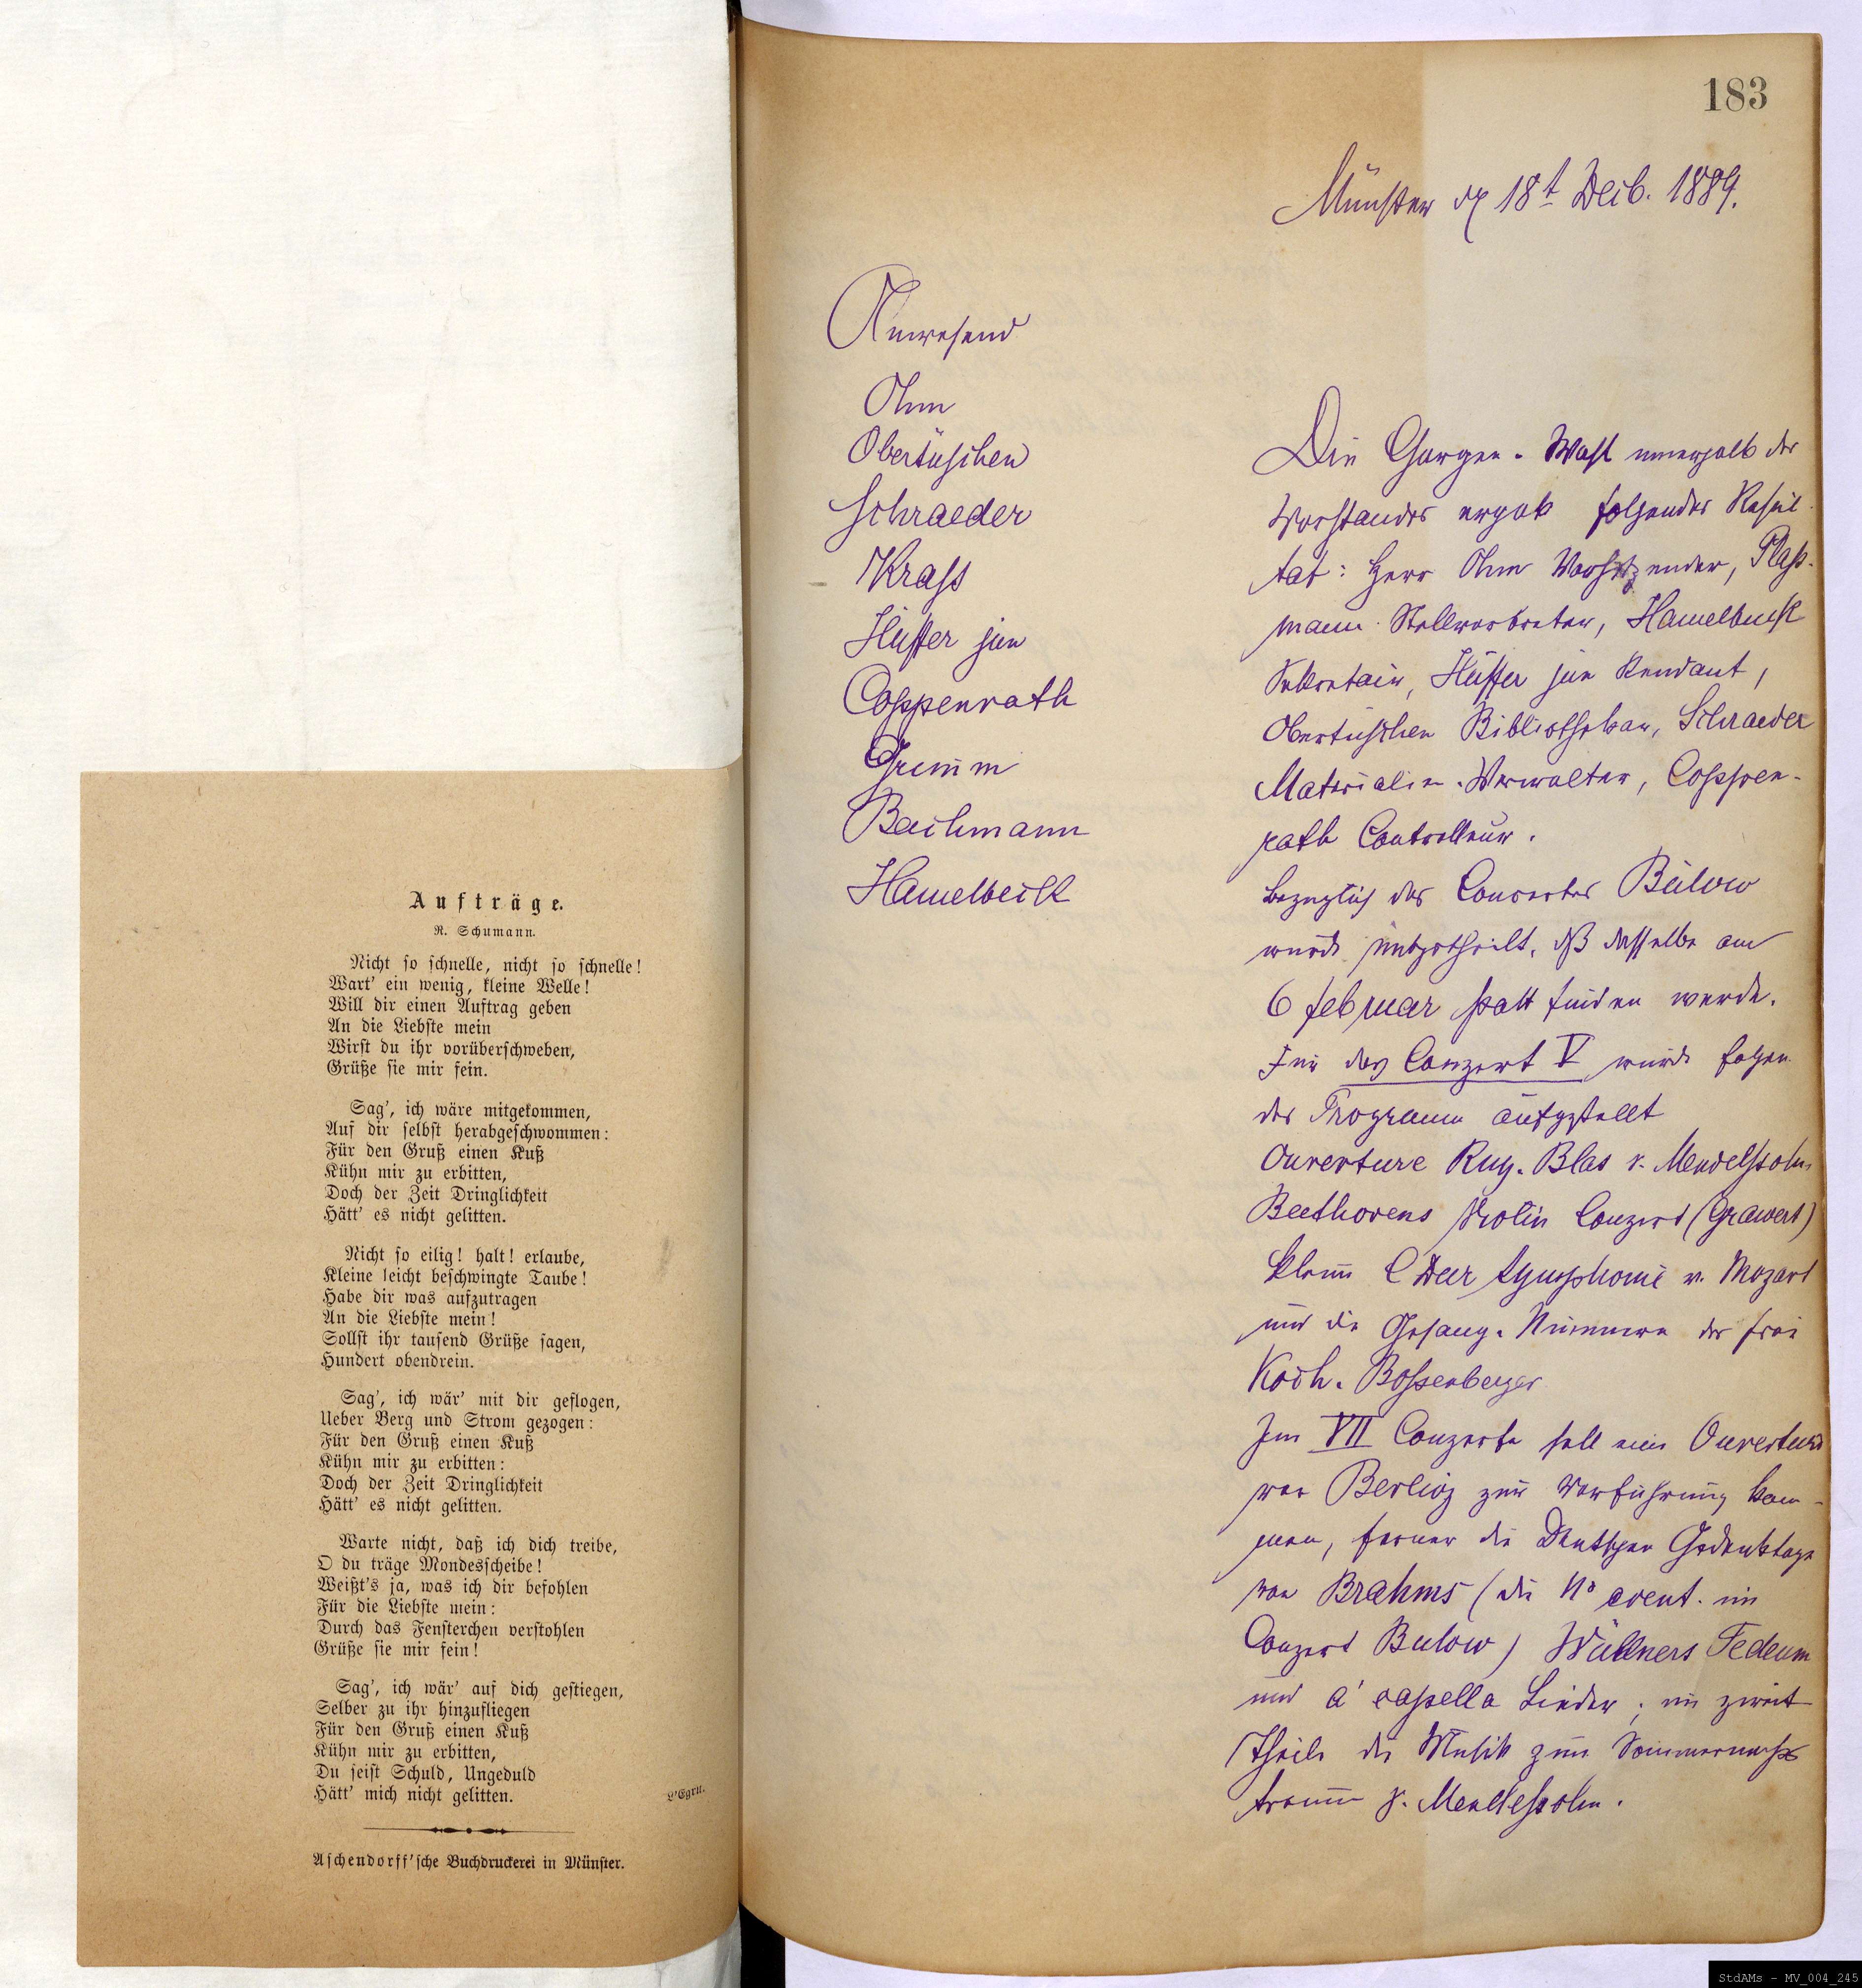 Aufträge.
R. Schumann.
Nicht so schnelle, nicht so schnelle!
Wart' ein wenig, kleine Welle!
Will dir einen Auftrag geben
An die Liebste mein
Wirst du ihr vorüberschweben,
Grüße sie mir fein.
Sag', ich wäre mitgekommen,
Auf dir selbst herabgeschwommen:
Für den Gruß einen Kuß
Kühn mir zu erbitten,
Doch der Zeit Dringlichkeit
Hätt' es nicht gelitten.
Nicht so eilig! halt! erlaube,
Kleine leicht beschwingte Taube!
Habe dir was aufzutragen
An die Liebste mein!
Sollst ihr tausend Grüße sagen,
Hundert obendrein.
Sag', ich wär' mit dir geflogen,
Ueber Berg und Strom gezogen:
Für den Gruß einen Kuß
Kühn mir zu erbitten:
Doch der Zeit Dringlichkeit
Hätt' es nicht gelitten.
Warte nicht, daß ich dich treibe,
O du träge Mondesscheibe!
Weißt's ja, was ich dir befohlen
Für die Liebste mein:
Durch das Fensterchen verstohlen
Grüße sie mir fein!
Sag', ich wär' auf dich gestiegen,
Selber zu ihr hinzufliegen
Für den Gruß einen Kuß
Kühn mir zu erbitten,
Du seist Schuld, Ungeduld
Hätt' mich nicht gelitten.
L'Egru.
Aschendorff'sche Buchdruckerei in Münster.
183
Münster 18t 1889.
Anwesend
Ohm
Obertüschen
Schraeder
Krass
Hüffer jun
Coppenrath
Grimm
Bachmann
Hamelbeck
Die Chargen-Wahl innerhalb des
Vorstandes ergab folgendes Resul-
tat: Herr Ohm Vorsitzender, Plass-
mann Stellvertreter, Hamelbeck
Sekretair, Hüffer jun Rendant,
Obertüschen Bibliothekar, Schraeder
Materialien-Verwalter, Coppen-
rath Controlleur.
Bezüglich des Concertes Bülow
wurde mitgetheilt, dß dasselbe am
6 februar statt finden werde.
Für das Conzert V wurde folgen
des Programm aufgestellt
Ouverture Ruy-Blas v. Mendelssohn,
Beethovens Violin Conzert (Grawert)
C Dur Symphonie v. Mozart
und die Gesang-Nummern der Frau
Koch-Bossenberger
Im VII Conzerte soll eine Ouverture
von Berlioz zur Vorführung kom-
men, ferner die Deutschen Gedenktage
von Brahms (die No event. im
Conzert Bulow) Wüllners Tedeum
und á capella Lieder; im zweit
Theile die Musik zum Sommernachts
traum v. Mendelssohn.
StdAMs - MV_004_245